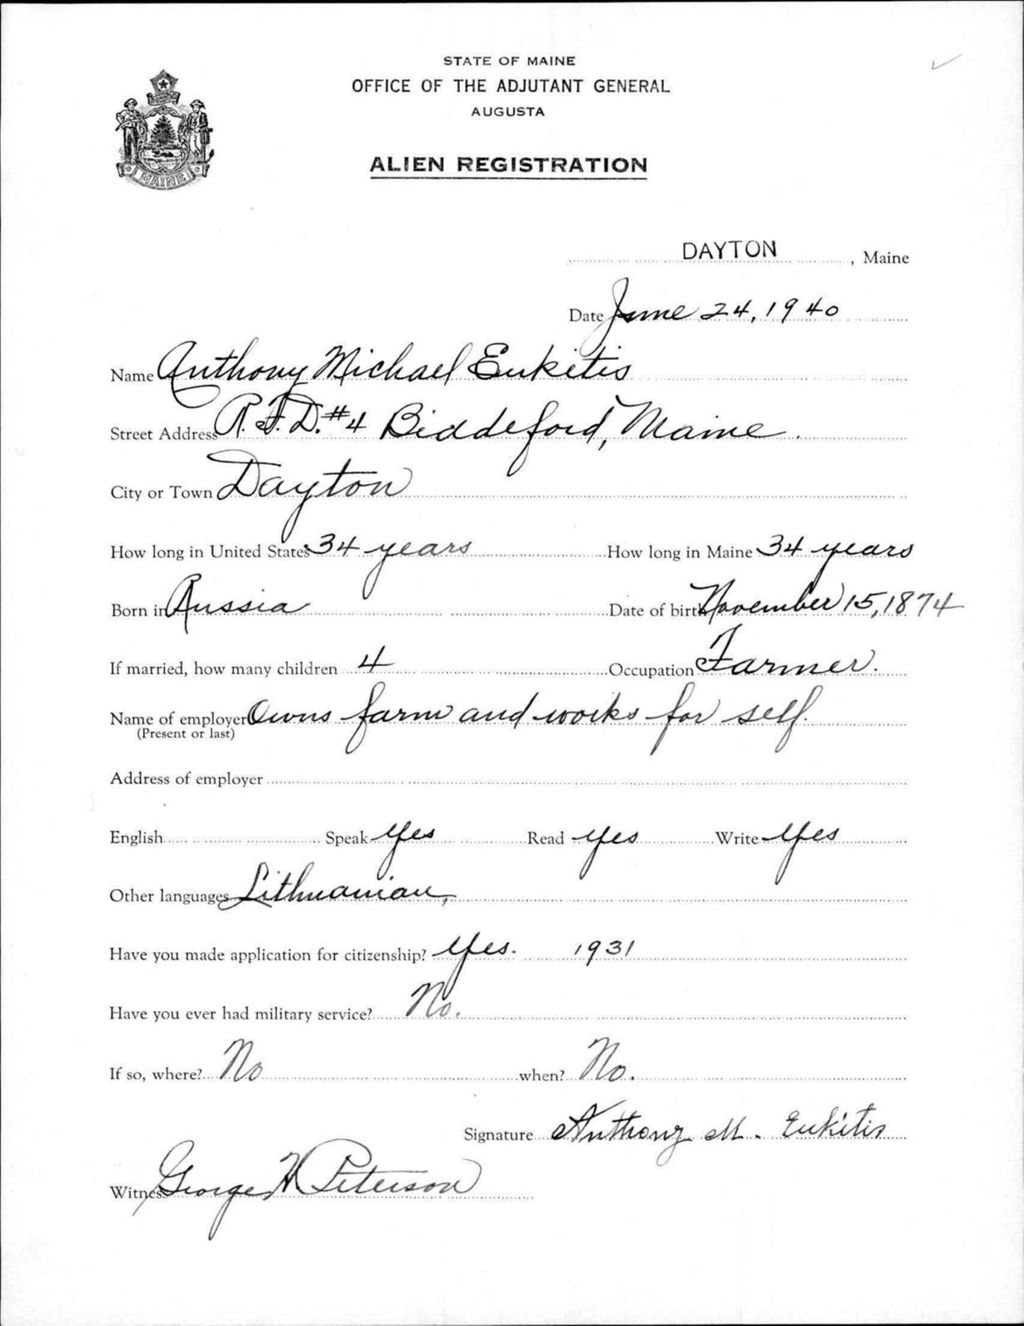 STATE OF MAINE
OFFICE OF THE ADJUTANT GENERAL
AUGUSTA
ALIEN REGISTRATION
MAINE
DAYTON, Maine
Date June 24, 1940
Name Anthony Michael Eukitis
Street Address R.F.D. #4 Biddeford, Maine.
City or Town Dayton
How long in United States 34 years How long in Maine 34 years
Born in Russia Date of birth November 15, 1874
If married, how many children 4 Occupation Farmer.
Name of employer Owns farm and works for self.
(Present or last)
Address of employer
English Speak Yes Read Yes Write Yes
Other languages Lithuanian,
Have you made application for citizenship? Yes. 1931
Have you ever had military service? No.
If so, where? No when? No.
Signature Anthony M. Eukitis
Witness George H Peterson